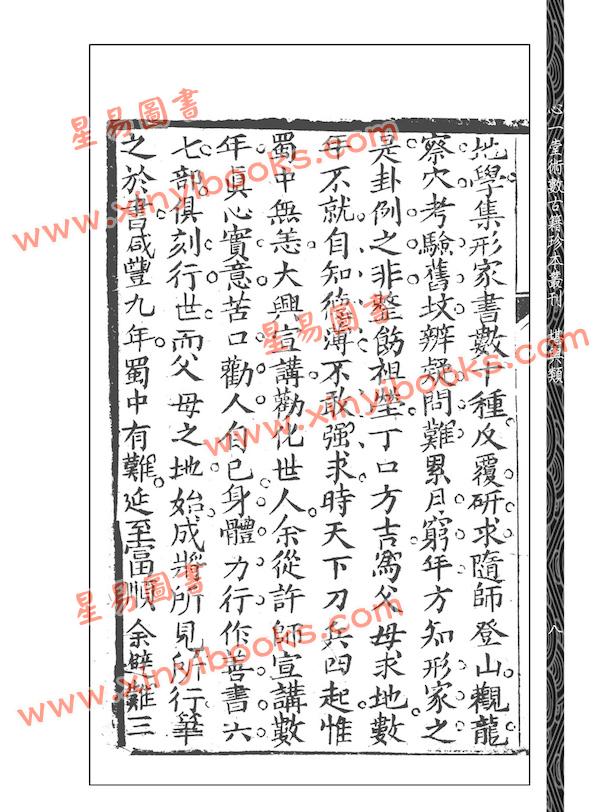 地學集形家書數十種反覆研求隨師登山觀龍
察穴考驗舊坟辨疑問難累月窮年方知形家之
是卦例之非整飭祖塋丁口方吉為父母求地數
年不就自知德薄不敢强求時天下刀兵四起惟
蜀中無恙大興宣講勸化世人余從許師宣講數
年眞心實意苦口勸人自己身體力行作善書六
七部俱刻行世而父母之地始成將所見所行筆
之於書咸豐九年蜀中有難延至富順余避難三
心一堂術數古籍珍本叢刊 堪輿類
八
星易圖書
www.xinyibooks.com
星易圖書
www.xinyibooks.com
星易圖書
www.xinyibooks.com